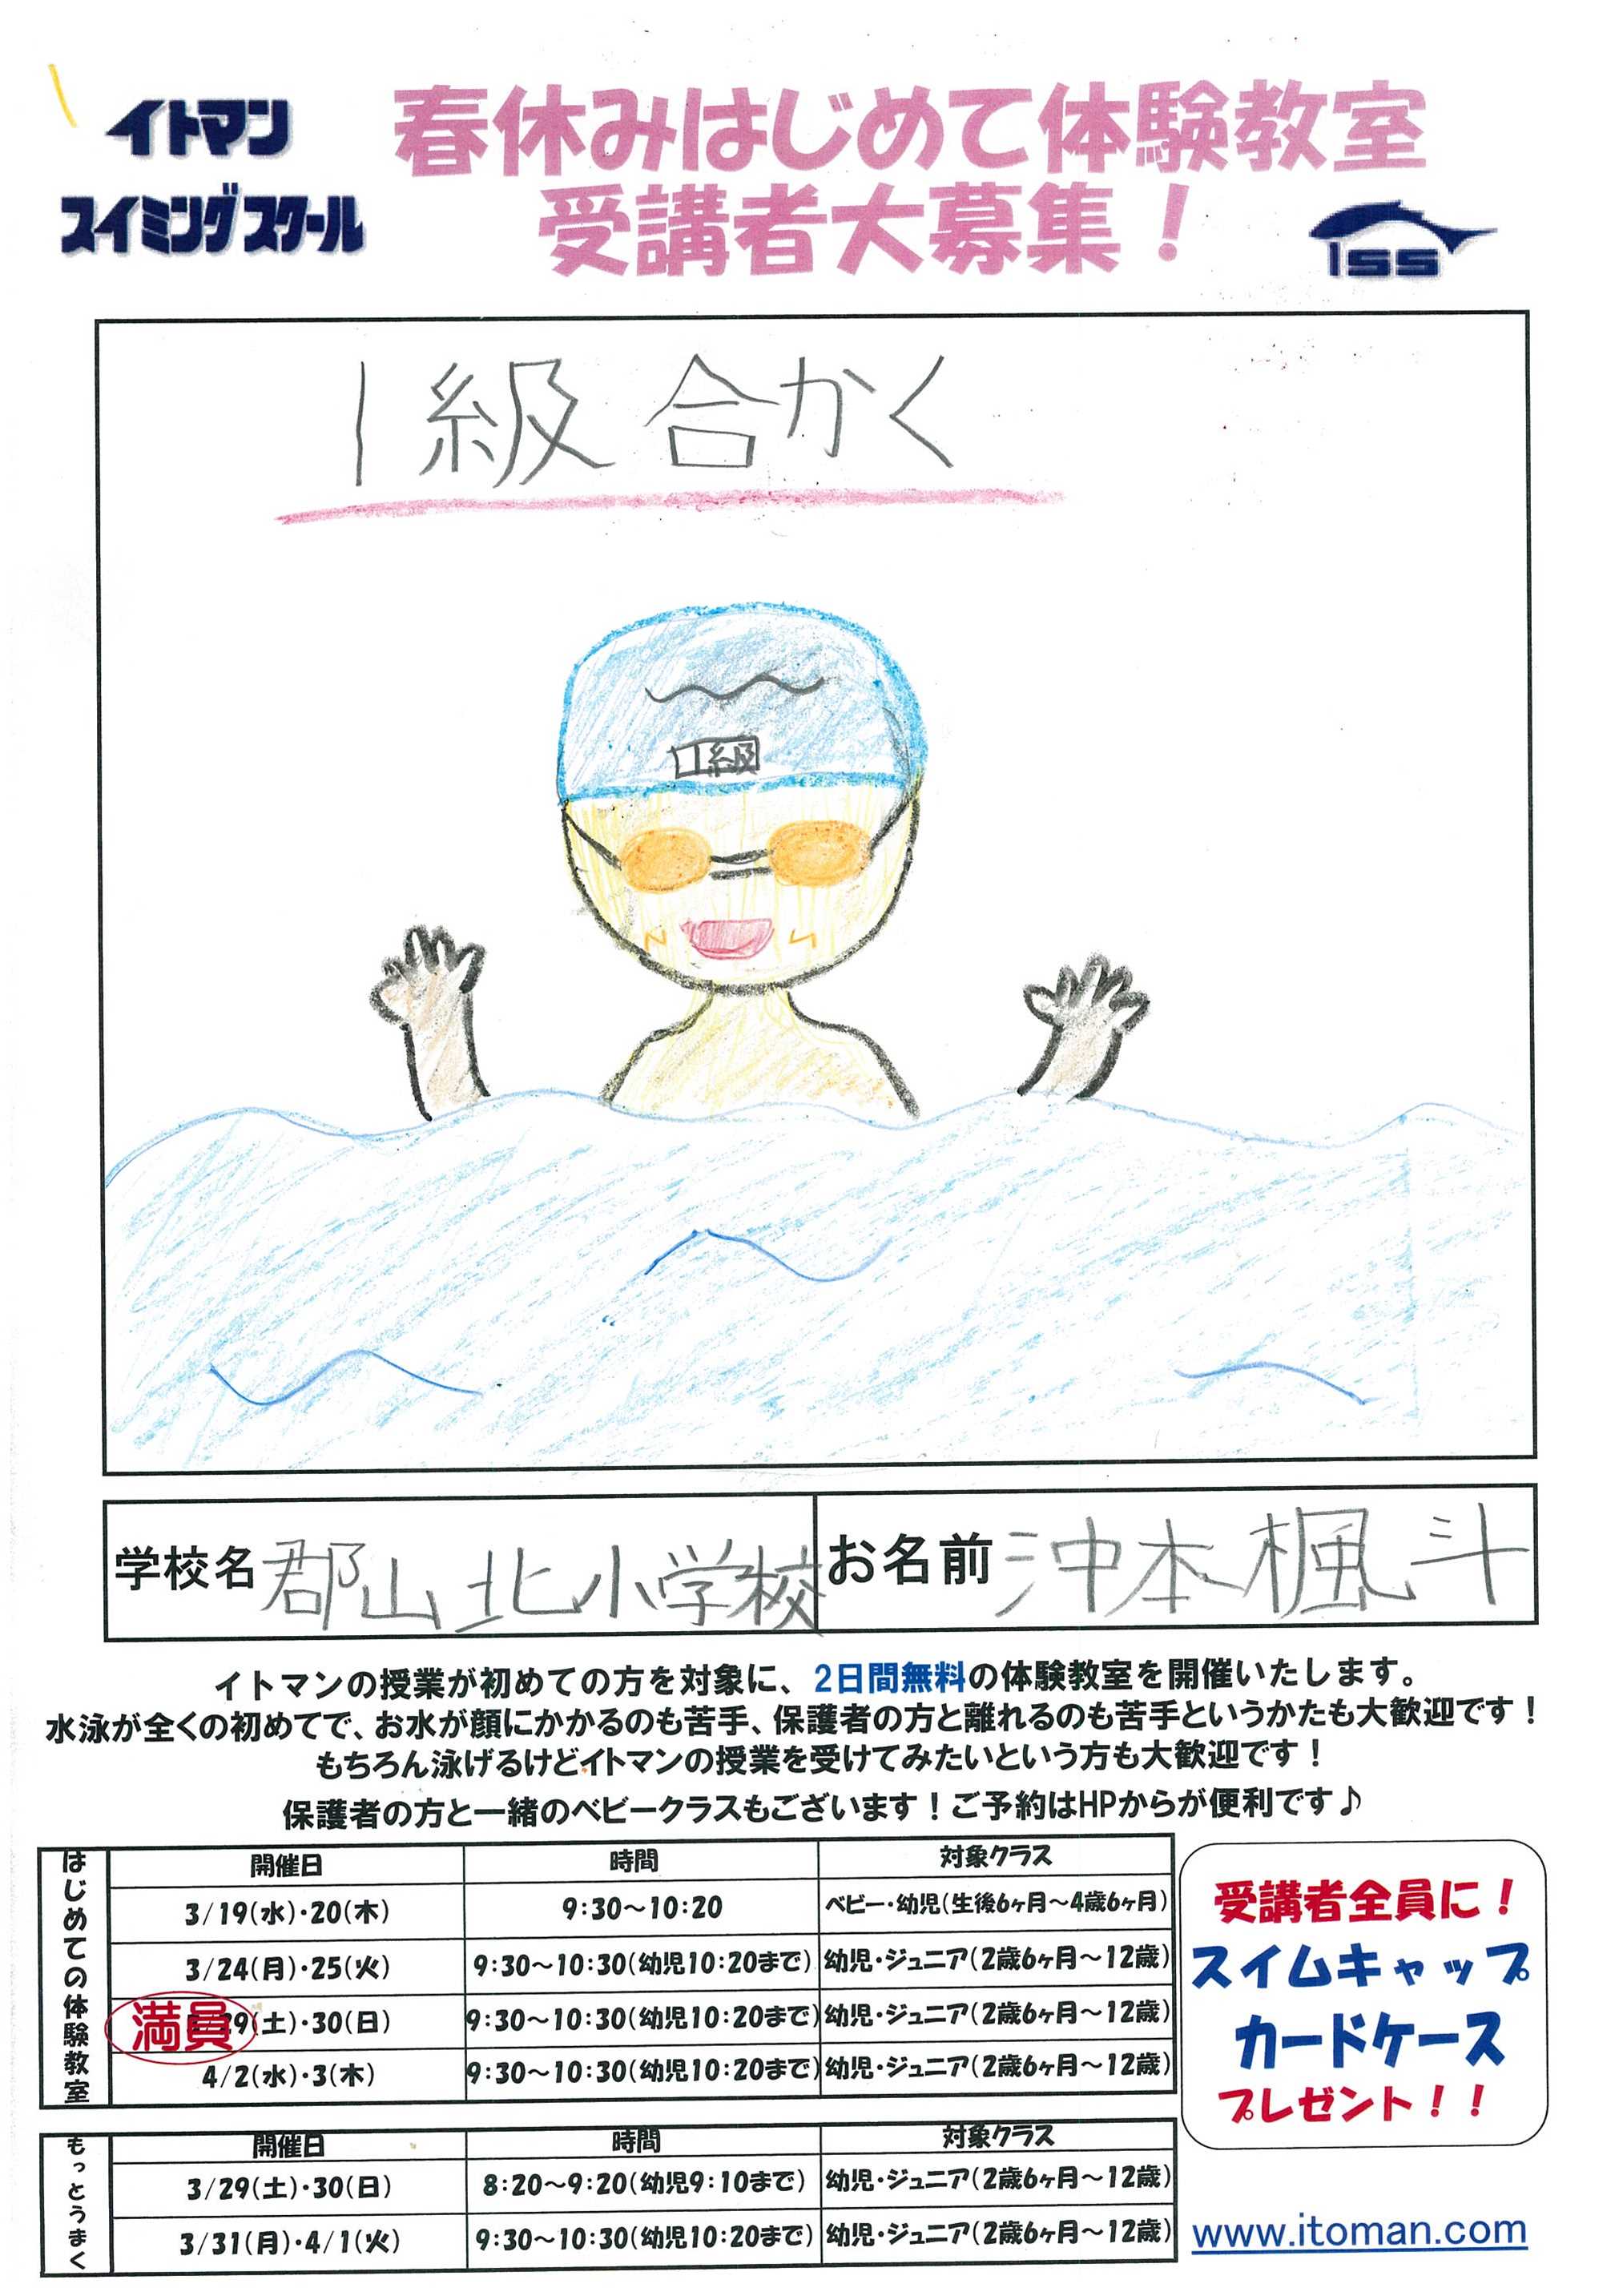 イトマン
スイミングスクール
春休みはじめて体験教室
受講者大募集！
ISS
1級合かく
1級
学校名 郡山北小学校 お名前 沖本楓斗
イトマンの授業が初めての方を対象に、2日間無料の体験教室を開催いたします。
水泳が全くの初めてで、お水が顔にかかるのも苦手、保護者の方と離れるのも苦手というかたも大歓迎です！
もちろん泳げるけどイトマンの授業を受けてみたいという方も大歓迎です！
保護者の方と一緒のベビークラスもございます！ご予約はHPからが便利です♪
はじめての体験教室
開催日 時間 対象クラス
3/19(水)・20(木) 9:30～10:20 ベビー・幼児(生後6ヶ月～4歳6ヶ月)
3/24(月)・25(火) 9:30～10:30(幼児10:20まで) 幼児・ジュニア(2歳6ヶ月～12歳)
満員 29(土)・30(日) 9:30～10:30(幼児10:20まで) 幼児・ジュニア(2歳6ヶ月～12歳)
4/2(水)・3(木) 9:30～10:30(幼児10:20まで) 幼児・ジュニア(2歳6ヶ月～12歳)
受講者全員に！
スイムキャップ
カードケース
プレゼント！！
もっとうまく
開催日 時間 対象クラス
3/29(土)・30(日) 8:20～9:20(幼児9:10まで) 幼児・ジュニア(2歳6ヶ月～12歳)
3/31(月)・4/1(火) 9:30～10:30(幼児10:20まで) 幼児・ジュニア(2歳6ヶ月～12歳)
www.itoman.com